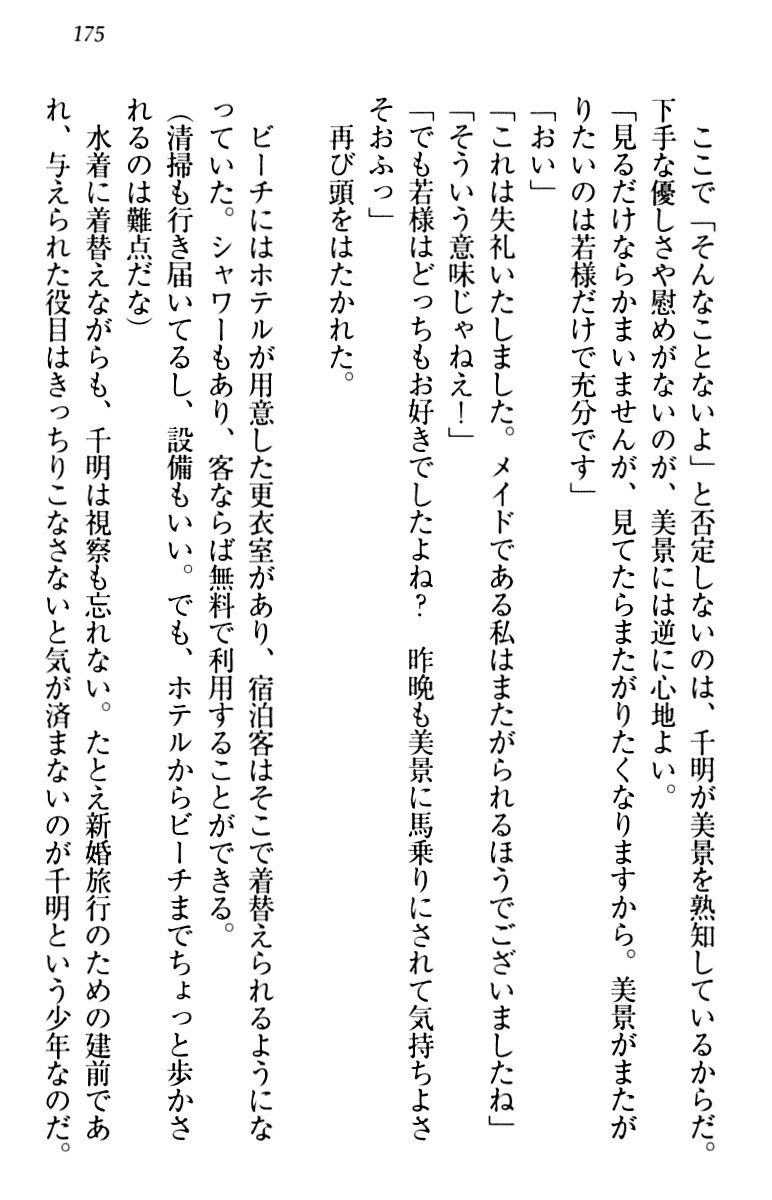 175
ここで「そんなことないよ」と否定しないのは、千明が美景を熟知しているからだ。
下手な優しさや慰めがないのが、美景には逆に心地よい。
「見るだけならかまいませんが、見てたらまたがりたくなりますから。美景がまたが
りたいのは若様だけで充分です」
「おい」
「これは失礼いたしました。メイドである私はまたがられるほうでございましたね」
「そういう意味じゃねえ！」
「でも若様はどっちもお好きでしたよね？　昨晩も美景に馬乗りにされて気持ちよさ
そおふっ」
再び頭をはたかれた。
ビーチにはホテルが用意した更衣室があり、宿泊客はそこで着替えられるようにな
っていた。シャワーもあり、客ならば無料で利用することができる。
（清掃も行き届いてるし、設備もいい。でも、ホテルからビーチまでちょっと歩かさ
れるのは難点だな）
水着に着替えながらも、千明は視察も忘れない。たとえ新婚旅行のための建前であ
れ、与えられた役目はきっちりこなさないと気が済まないのが千明という少年なのだ。